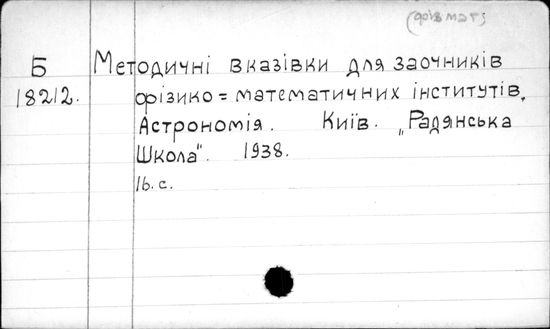 (фіз мат)
Б
18212.
Методичні вказівки для заочників
фізико=математичних інститутів.
Астрономія. Київ. „Радянська
Школа". 1938.
16.с.